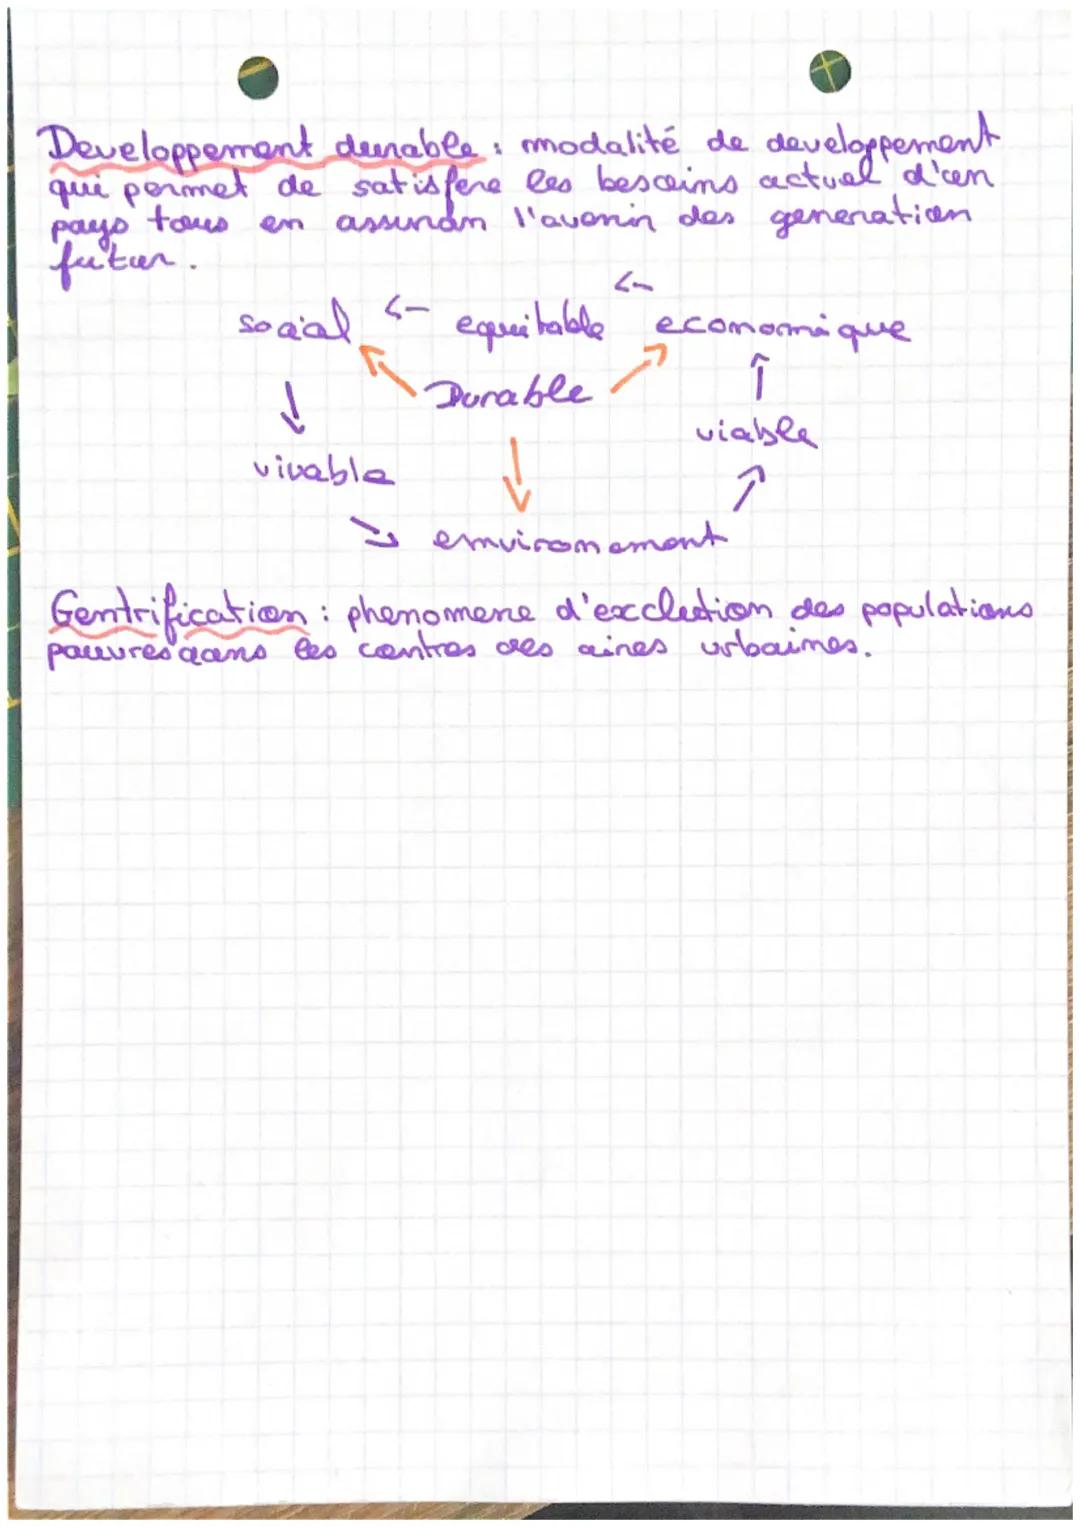 Developpement durable : modalité de developpement
qui permet de satisfere les besoins actuel d'un
pays tous en assuran l'avenir des generation
futur.
<-
social <- equitable economique
Durable
viable
vivable
environement
Gentrification : phenomene d'exclution des populations
pauvres dans les centres des aires urbaines.